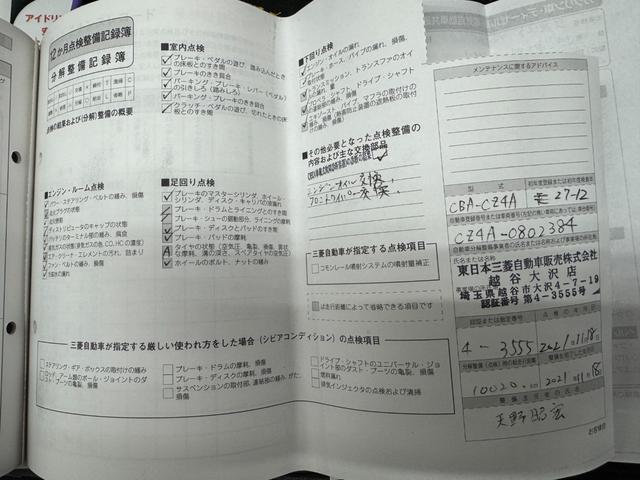 12か月点検整備記録簿
分解整備記録簿
点検の結果及び(分解)整備の概要
■室内点検
ブレーキ・ペダルの遊び、踏み込んだときの床板とのすき間
ブレーキのきき具合
パーキング・ブレーキ・レバー(ペダル)の引きしろ(踏みしろ)
パーキング・ブレーキのきき具合
クラッチ・ペダルの遊び、切れたときの床板とのすき間
■エンジン・ルーム点検
パワー・ステアリング・ベルトの緩み、損傷
点火プラグの状態
点火時期
ディストリビュータのキャップの状態
バッテリのターミナル部の緩み、腐食
排気ガスの状態(排気ガスの色、CO、HCの濃度)
エア・クリーナ・エレメントの汚れ、詰まり
ファン・ベルトの緩み、損傷
■足回り点検
ブレーキのマスターシリンダ、ホイール・シリンダ、ディスク・キャリパの液漏れ
ブレーキ・ドラムとライニングとのすき間
ブレーキ・シューの摺動部分、ライニングの摩耗
ブレーキ・ディスクとパッドのすき間
ブレーキ・パッドの摩耗
タイヤの状態(空気圧、亀裂、損傷、異状な摩耗、溝の深さ、スペアタイヤの空気圧)
ホイールのボルト、ナットの緩み
■下回り点検
エンジン・オイルの漏れ
■その他必要となった点検整備の内容及び主な交換部品
エンジンオイル交換
フロントワイパー交換
三菱自動車が指定する点検項目
コモンレール噴射システムの噴射量補正
は走行距離によって省略できる項目です
三菱自動車が指定する厳しい使われ方をした場合(シビアコンディション)の点検項目
ステアリング・ギア・ボックスの取付けの緩み
ロッド、アーム類のボール・ジョイントのダスト・ブーツの亀裂、損傷
ブレーキ・ドラムの摩耗、損傷
ブレーキ・ディスクの摩耗、損傷
サスペンションの取付部、連結部の緩み、がた、損傷
ドライブ・シャフトのユニバーサル・ジョイント部のダスト・ブーツの亀裂、損傷
燃料漏れ
排気インジェクタの点検および清掃
メンテナンスに関するアドバイス
型式
CBA-CZ4A
27-12
CZ4A-0802384
東日本三菱自動車販売株式会社
越谷大沢店
埼玉県越谷市大沢4-7-19
認証番号 第4-3555号
4-3555
2021 11 18
10020
2021 11 18
お客様用